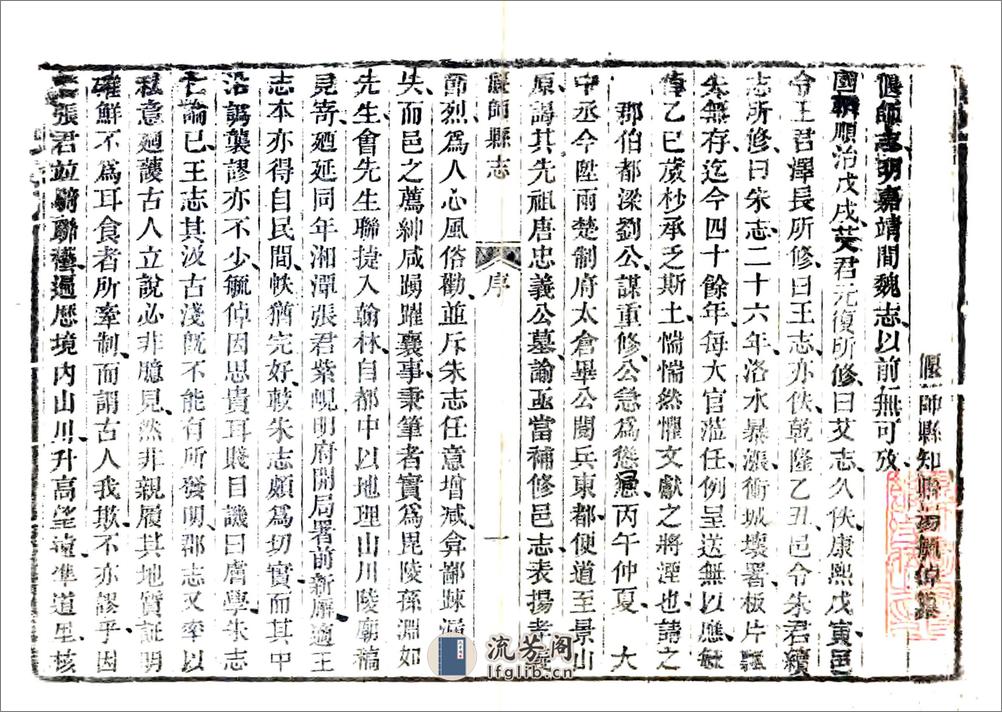 偃師縣知縣湯毓倬纂
偃師志明嘉靖間魏志以前無可攷
國朝順治戊戌艾君元復所修曰艾志久佚康熙戊寅邑
令王君澤長所修曰王志亦佚乾隆乙丑邑令朱君續
志所修曰朱志二十六年洛水暴漲衝城壞署板片飄
失無存迄今四十餘年每大官涖任例呈送無以應毓
倬乙巳歲杪承乏斯土惴惴然懼文獻之將湮也請之
郡伯都梁劉公謀重修公急為慫恿丙午仲夏 大
中丞今陞兩楚制府太倉畢公閱兵東都便道至景山
原謁其先祖唐忠義公墓諭亟當補修邑志表揚孝義
偃師縣志
序
一
節烈為人心風俗勸並斥朱志任意增减弇鄙踈漏
失而邑之薦紳咸踴躍襄事秉筆者實為毘陵孫淵如
先生會先生聯捷入翰林自都中以地理山川陵廟稿
見寄廼延同年湘潭張君紫峴明府開局署前新廨適王
志本亦得自民間帙猶完好較朱志頗為切實而其中
沿譌襲謬亦不少毓倬因思貴耳賤目譏曰膚學朱志
論已王志其汲古淺既不能有所發明郡志又率以
私意廻護古人立說必非臆見然非親履其地實証明
確鮮不為耳食者所牽制而謂古人我欺不亦謬乎因
張君並騎聯鑣遍歷境內山川升高望遠準道里核
流芳阁
lfglib.cn